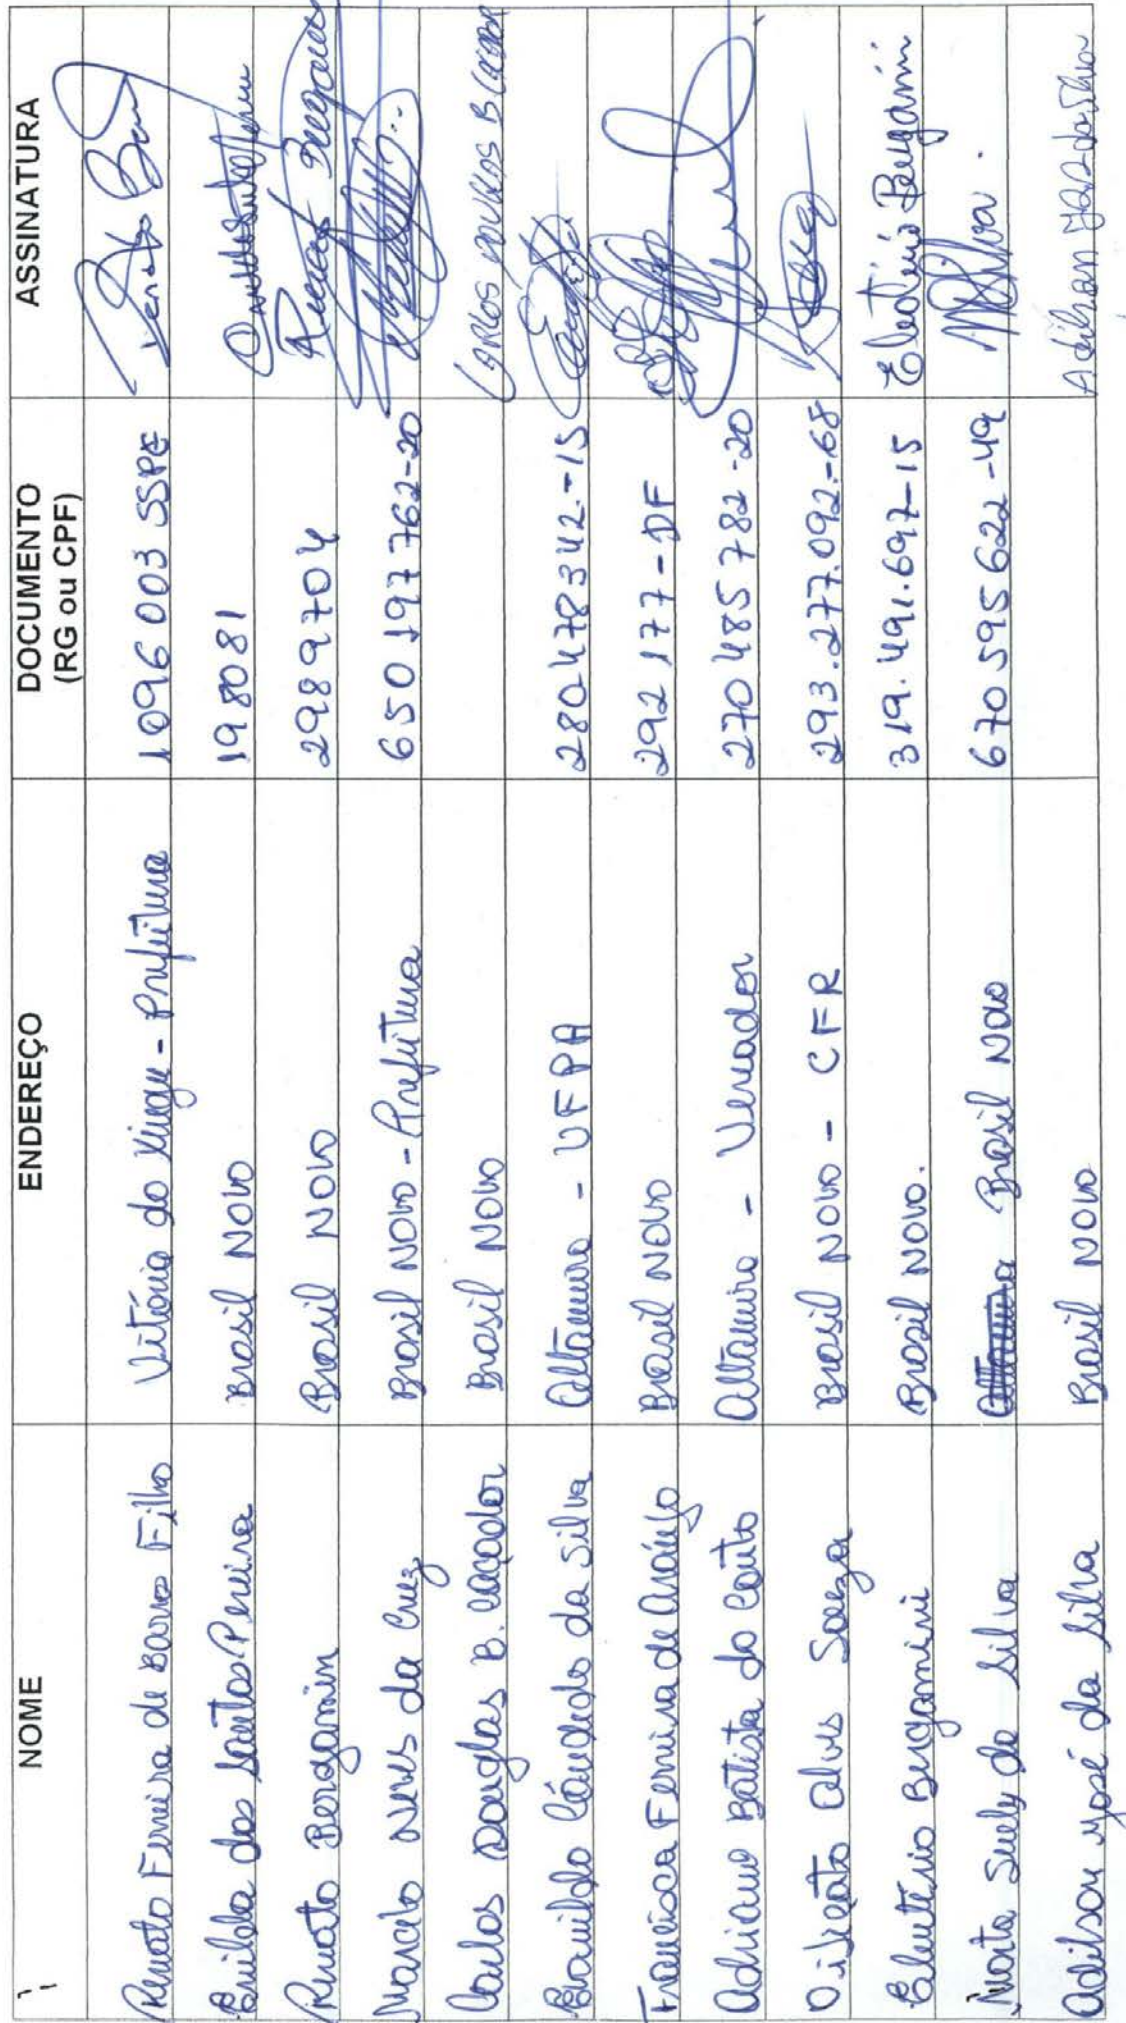 NOME ENDEREÇO DOCUMENTO (RG ou CPF) ASSINATURA
Renato Ferreira de Barros Filho Vitória do Xingu - Prefeitura 1096003 SSPE
Enilda dos Santos Pereira Brasil Novo 198081
Renato Bergamim Brasil Novo 2989704 Renato Bergamim
Marcelo Neves da Cruz Brasil Novo - Prefeitura 650197762-20
Carlos Douglas B. Caçador Brasil Novo Carlos Douglas B Caçador
Eranildo Cândido da Silva Altamira - UFPA 280478342-15
Francisca Ferreira de Araújo Brasil Novo 292177-DF
Adriano Batista do Couto Altamira - Vereador 270485782-20
Alves Souza Brasil Novo - CFR 293.277.092-68
Eleutério Bergamini Brasil Novo. 319.491.697-15 Eleutério Bergamini
Marta Suely da Silva Brasil Novo 670595622-49
Adilson José da Silva Brasil Novo Adilson José da Silva